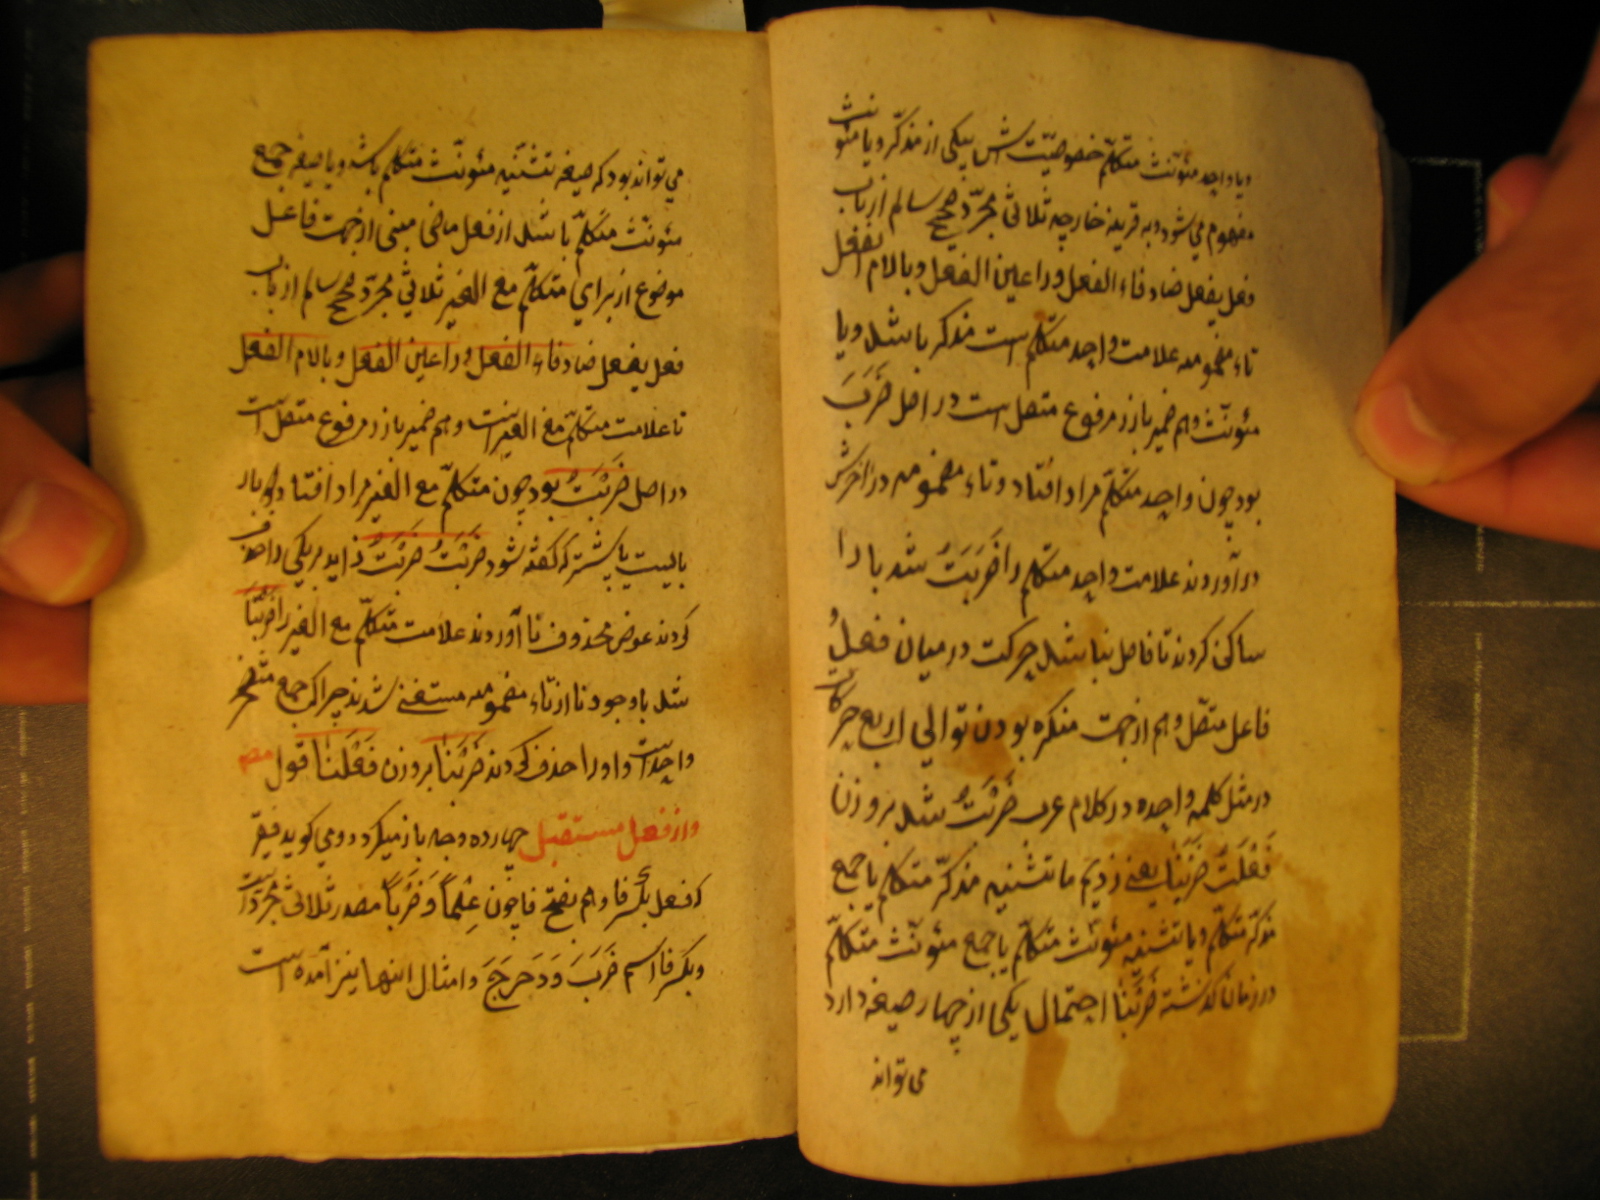 ویا واحد مئونّث متکلّم خصوصیّت اش بیکی از مذکّر ویا مئونث
مفهوم می شود به قرینه خارجه ثلاثی مجرّد صحیح سالم از باب
فعل یفعل ضاد فاء الفعل ورا عین الفعل وبا لام الفعل
تاء مضمومه علامت واحد متکلّم است مذکر باشد ویا
مئونّث وهم ضمیر بارز مرفوع متصل است در اصل ضَرَبَ
بود چون واحد متکلّم مراد افتاد وتاء مضمومه در آخرش
در آوردند علامت واحد متکلّم را ضَرَبَتُ شد با را
ساکن کردند تا فاصل نباشد حرکت در میان فعل و
فاعل متصل وهم از جهت منکره بودن توالی اربع حرکات
در مثل کلمه واحده در کلام عرب ضَرَبْتُ شد بر وزن
فَعَلْتُ ضَرَبْنا یعنی زدیم ما تثنیه مذکّر متکلم یا جمع
مذکّر متکلّم ویا تثنیه مئونّث متکلّم یا جمع مئونّث متکلّم
در زمان گذشته ضَرَبْنا احتمال یکی از چهار صیغه دارد
می تواند
می تواند بود که صیغه تثنیه مئونّث متکلم باشد ویا صیغه جمع
مئونّث متکلّم باشد از فعل ماضی مبنی از جهت فاعل
موضوع از برای متکلّم مع الغیر ثلاثی مجرّد صحیح سالم از باب
فعل یفعل ضاد فاء الفعل ورا عین الفعل وبا لام الفعل
نا علامت متکلّم مع الغیر است وهم ضمیر بارز مرفوع متصل است
در اصل ضَرَبْتُ بود چون متکلّم مع الغیر مراد افتاد دوبار
بایست یا بیشتر که گفته شود ضَرَبْتُ ضَرَبْتُ زاید بر یکی را حذف
کردند عوض محذوف نا آوردند علامت متکلّم مع الغیر را ضَرَبْتُنا
شد با وجود نا از تاء مضمومه مستغنی شدند چرا که جمع متضمن
واحد است واورا حذف کردند ضَرَبْنا بر وزن فَعَلْنا قول مص
واز فعل مستقبل چهارده وجه باز میکردد ومی کوید فقیر
که فعل بکسر فا وهم بفتح فا چون عِلْماً وَ ضَرْباً مصدر ثلاثی مجرّد است
وبکسر فا اسم ضَرَبَ وَ دَحْرَجَ وامثال اینها نیز آمده است